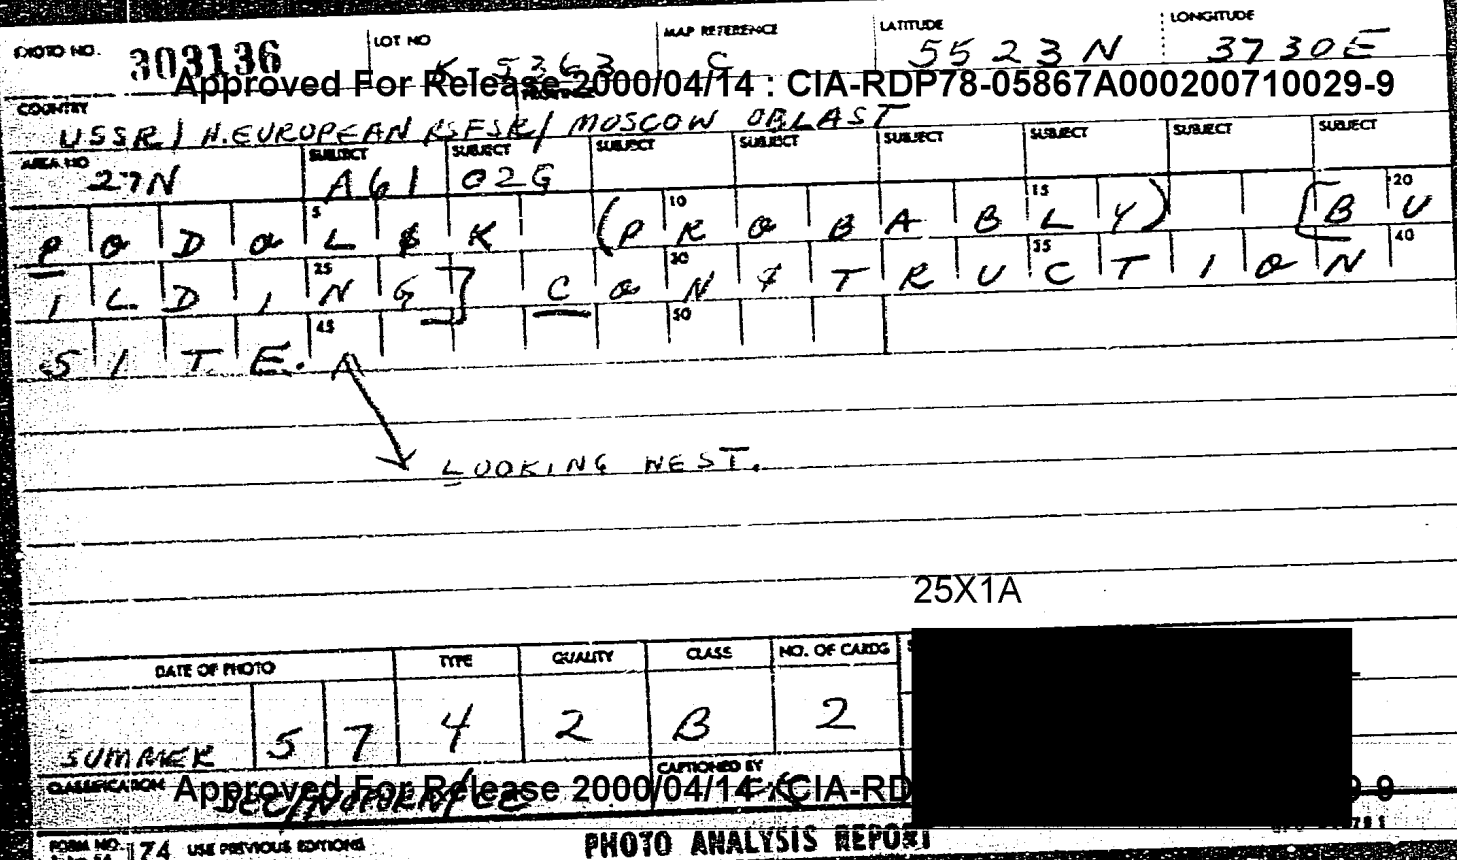 PHOTO NO. 303136 LOT NO K-5363 MAP REFERENCE C LATITUDE 5523N LONGITUDE 3730E
Approved For Release 2000/04/14 : CIA-RDP78-05867A000200710029-9
COUNTRY
USSR/N.EUROPEAN RSFSR/MOSCOW OBLAST
AREA NO 27N SUBJECT A61 SUBJECT 02G SUBJECT SUBJECT SUBJECT SUBJECT SUBJECT SUBJECT
5 10 15 20
PODOLSK (PROBABLY) [BU
25 30 35 40
ILDING] CONSTRUCTION
45 50
SITE.
LOOKING WEST.
25X1A
DATE OF PHOTO TYPE QUALITY CLASS NO. OF CARDS
SUMMER 5 7 4 2 B 2
CLASSIFICATION CAPTIONED BY
Approved For Release 2000/04/14 : CIA-RD 9-9
SEC/NOFORN/CE
FORM NO. 174 USE PREVIOUS EDITIONS PHOTO ANALYSIS REPORT